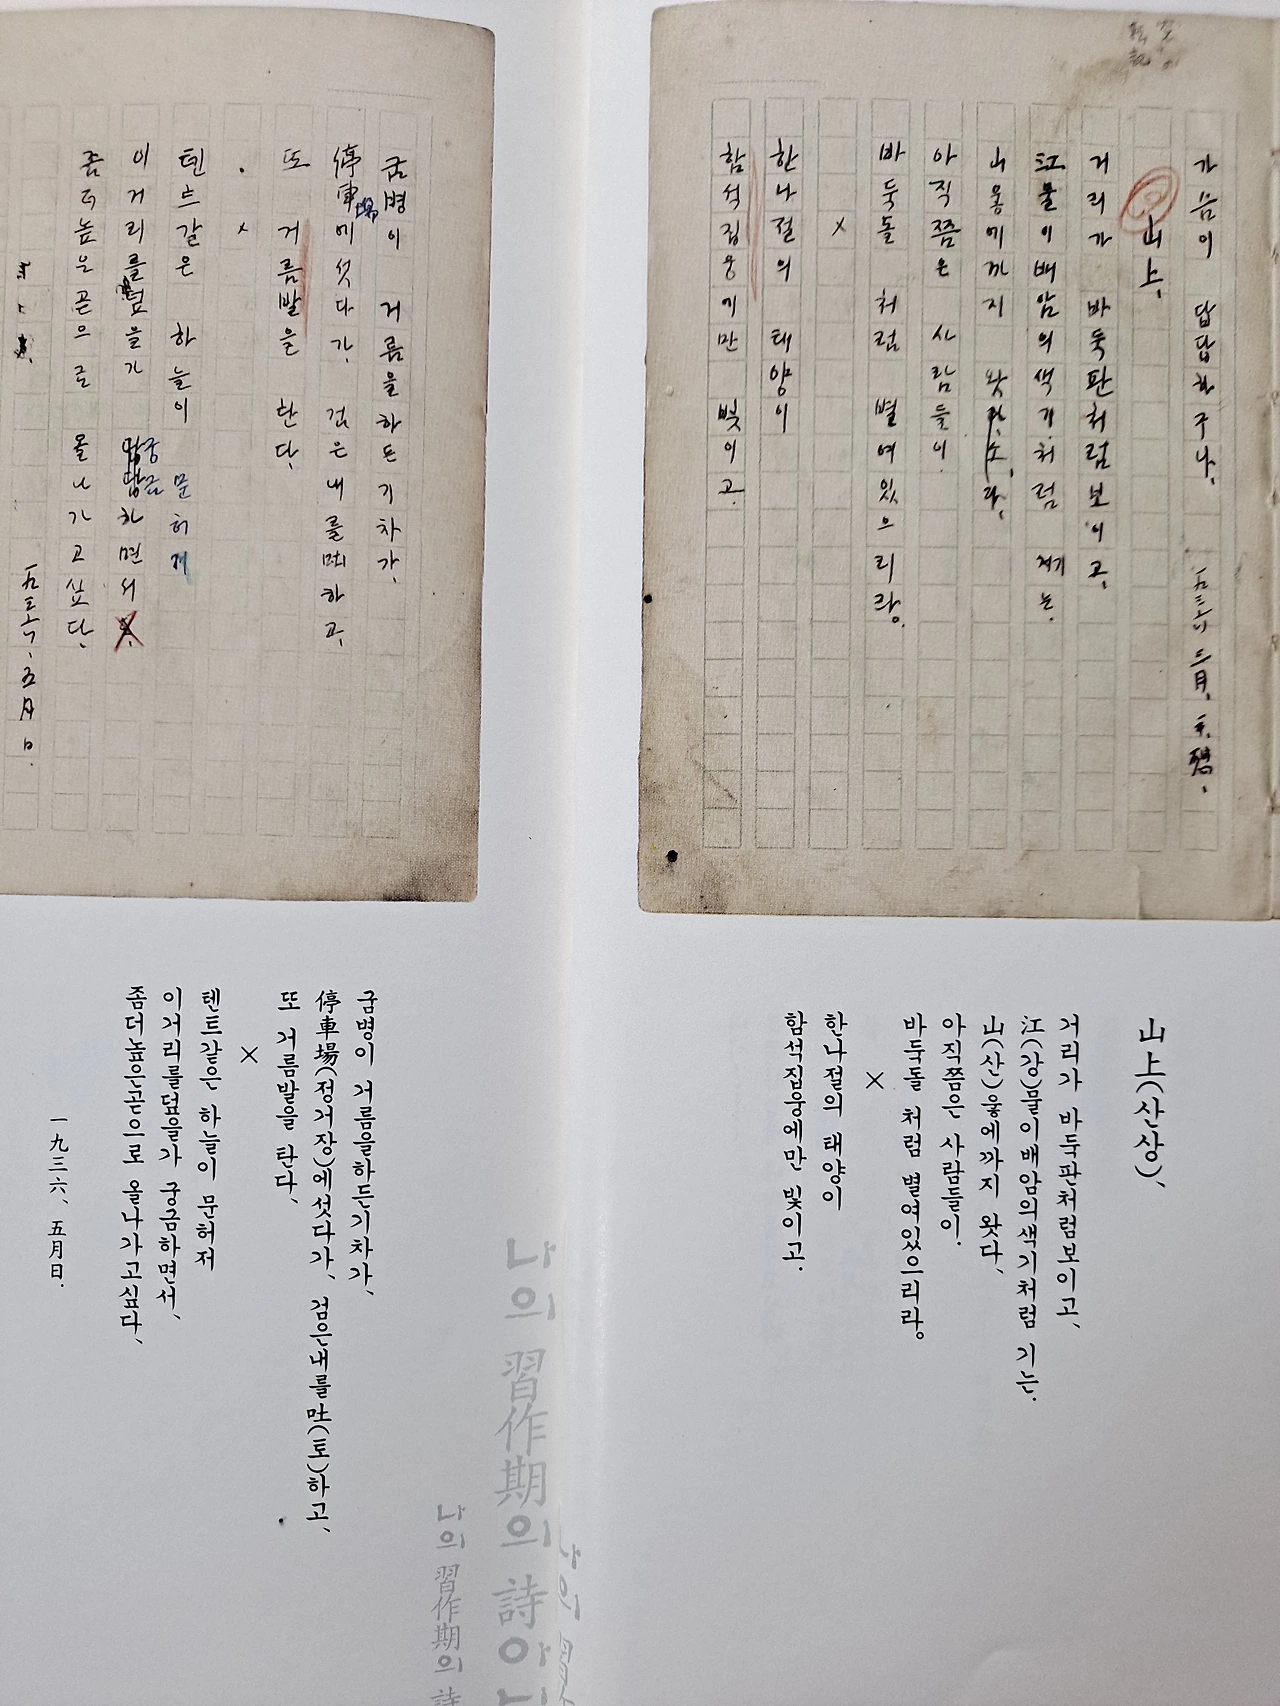 가슴이 답답하구나, 一九三六 三月, 平壤.
山上,
거리가 바둑판처럼보이고,
江물이배암의색기처럼 기는.
山웋에까지 왓다,
아직쯤은 사람들이.
바둑돌 처럼 별여있으리라.
×
한나절의 태양이
함석집웅에만 빛이고.
山上(산상)、
거리가 바둑판처럼보이고、
江(강)물이배암의색기처럼 기는.
山(산)웋에까지 왓다、
아직쯤은 사람들이.
바둑돌 처럼 별여있으리라。
×
한나절의 태양이
함석집웅에만 빛이고.
굼벙이 거름을하든기차가,
停車場에섯다가, 검은내를吐하고,
또 거름발을 탄다,
×
텐트같은 하늘이 문허저
이거리를덮을가 궁금하면서
좀더높은곧으로 올나가고싶다,
一九三六、五月日.
굼벙이 거름을하든기차가、
停車場(정거장)에섯다가、 검은내를吐(토)하고、
또 거름발을 탄다、
×
텐트같은 하늘이 문허저
이거리를덮을가 궁금하면서、
좀더높은곧으로 올나가고싶다、
一九三六、五月日.
나의 習作期의 詩아니
나의 習作期의 詩